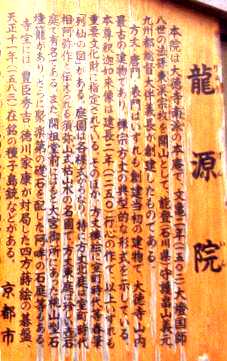 龍源院
本院は大徳寺南派の本庵で、文亀二年(一五〇二)大燈国師
八世の法孫東溪宗牧を開山として、能登(石川県)の守護畠山義元、
九州都総督大伴義長が創建したものである。
方丈・唐門・表門はいずれも創建当初の建物で、大徳寺山内
最古の建物であり、禅宗方丈の典型的な形式を示している。
本尊釈迦如来像は建長二年(一二五〇)行心の作で、以上いずれも
重要文化財に指定されている。そのほか、方丈襖絵に
の図がある。庭園は各様式から成り、特に方丈北庭は室町時代
相阿弥作と伝えられる須弥山式枯山水の名園で、方丈東庭に珍しい
庭で有名である。また開祖堂前には
燈籠があり、さらに聚楽第の礎石を配した阿吽の石庭等もある。
寺宝には、豊臣秀吉、徳川家康が対局した四方蒔絵の碁盤、
天正十一年(一五八三)在銘の種子島銃などがある。
京都市